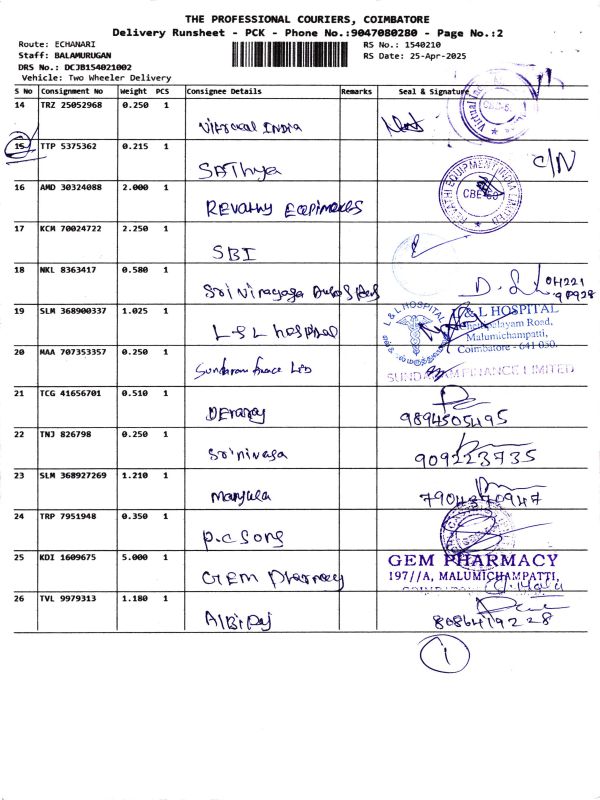 THE PROFESSIONAL COURIERS, COIMBATORE
Delivery Runsheet - PCK - Phone No.:9047080280 - Page No.:2
Route: ECHANARI
RS No.: 1540210
Staff: BALAMURUGAN
RS Date: 25-Apr-2025
DRS No.: DCJB154021002
Vehicle: Two Wheeler Delivery
S No Consignment No Weight PCS Consignee Details Remarks Seal & Signature
14 TRZ 25052968 0.250 1
15 TTP 5375362 0.215 1
SAThya C/N
16 AMD 30324088 2.000 1
REVATHI EQUIPMENT INDIA LIMITED
CBE-50
17 KCM 70024722 2.250 1
SBI
18 NKL 8363417 0.580 1
19 SLM 368900337 1.025 1
L & L HOSPITAL
L & L HOSPITAL
Malumichampatti,
Coimbatore - 641 050.
L&L hospital
20 MAA 707353357 0.250 1
SUNDARAM FINANCE LIMITED
21 TCG 41656701 0.510 1
Devaraj 9894505495
22 TNJ 826798 0.250 1
Srinivasa 909223735
23 SLM 368927269 1.210 1
Manjula 7904370947
24 TRP 7951948 0.350 1
P.C Song
25 KDI 1609675 5.000 1
GEM PHARMACY
197//A, MALUMICHAMPATTI,
GEM Pharmacy
26 TVL 9979313 1.180 1
AlBiRaj 8086419228
1